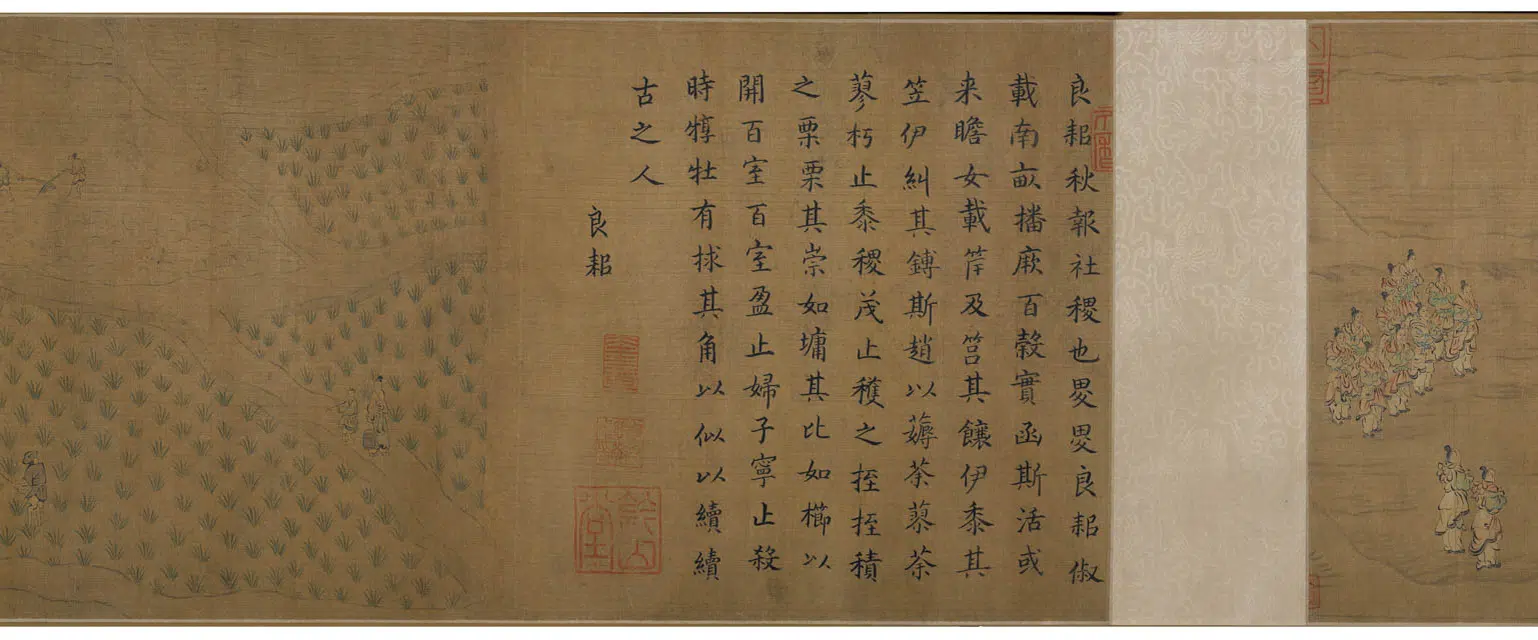 良耜秋報社稷也畟畟良耜俶
載南畝播厥百穀實函斯活或
来瞻女載筐及筥其饟伊黍其
笠伊糾其鎛斯趙以薅荼蓼荼
蓼朽止黍稷茂止穫之挃挃積
之栗栗其崇如墉其比如櫛以
開百室百室盈止婦子寧止殺
時犉牡有捄其角以似以續續
古之人
良耜